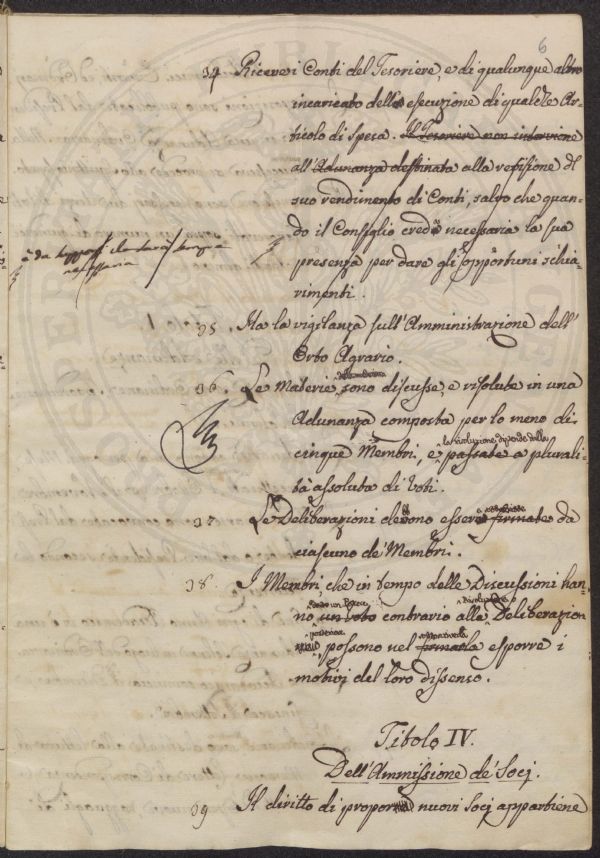 6
34 Riceve i Conti del Tesoriere, e di qualunque altro
incaricato dell'esecuzione di qualche Ar-
ticolo di Spesa. Il Tesoriere non interviene
all'Adunanza destinata alla revisione del
suo rendimento di Conti, salvo che quan-
do il Consiglio creda necessaria la sua
presenza per dare gli opportuni schia-
rimenti.
35. Ha la vigilanza sull'Amministrazione dell'
Orto Agrario.
36. Le Materie sono discusse, e risolute in una
Adunanza composta per lo meno di
la risoluzione dipende dalla
cinque Membri, e passate a plurali-
tà assoluta di Voti.
37 Le Deliberazioni devono essere firmate da
ciascuno de' Membri.
38. I Membri, che in tempo delle Discussioni han-
no un voto contrario alla Deliberazion
possono nel firmarla esporre i
motivi del loro dissenso.
Titolo IV.
Dell'Ammissione de' Socj.
39 Il diritto di proporre nuovi Socj appartiene